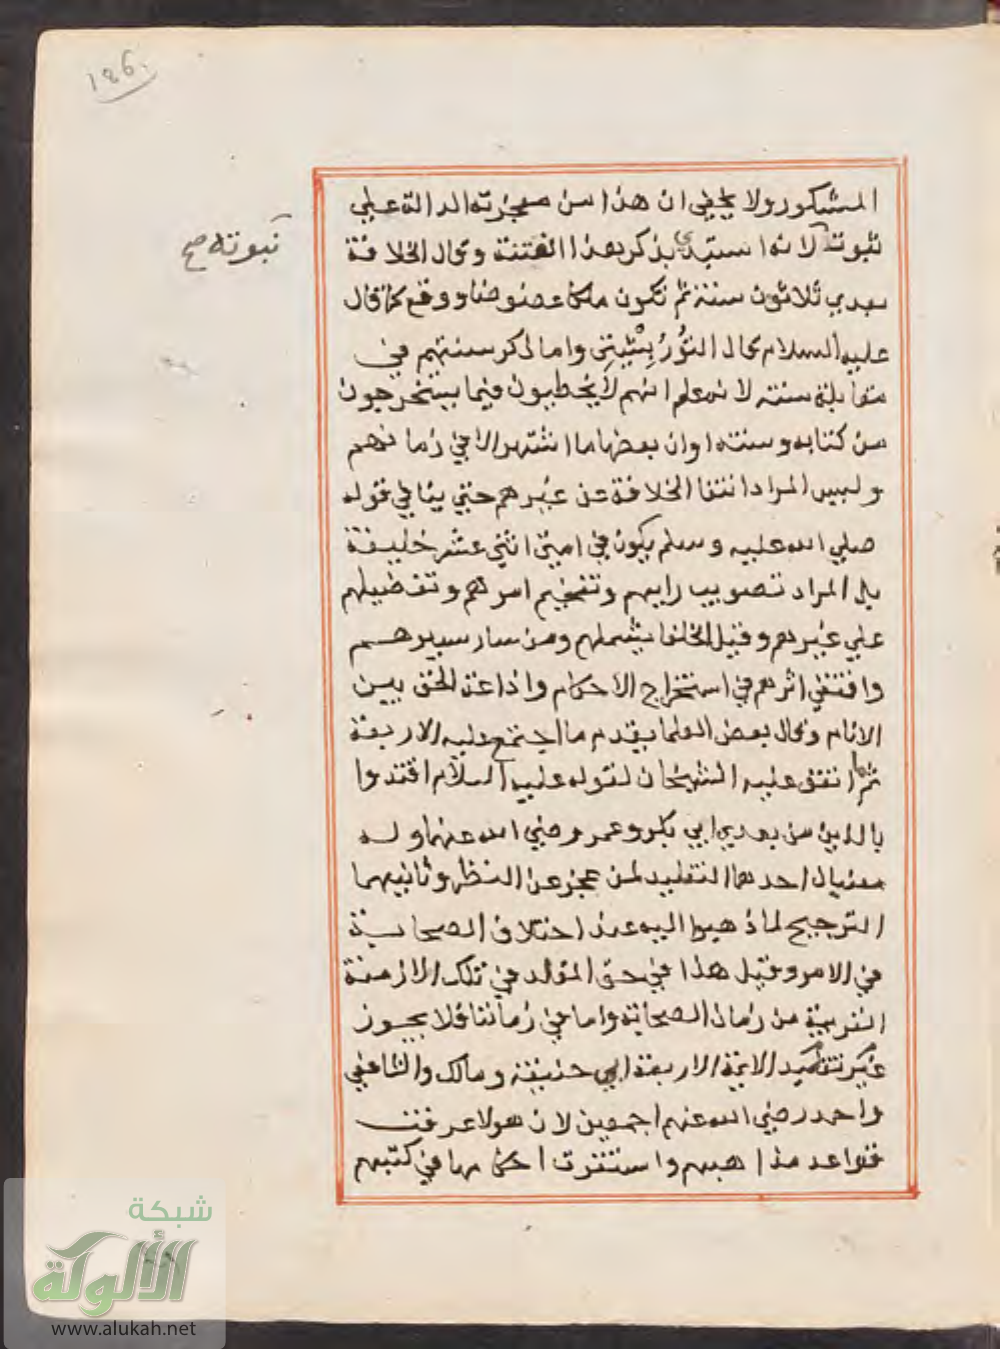 186
نبوته صح
المشكور ولا يخفى ان هذا من معجزته الدالة علي
نبوته لانه استبدي بذكر بعد الفتنة وقال الخلافة
بعدي ثلاثون سنة ثم تكون ملكا عضوضا ووقع كما قال
عليه السلام قال التُّورْبِشْتِي واما ذكر سنتهم في
مقابلة سنته لانه علم انهم لا يخطيون فيما يستخرجون
من كتابه وسنته او ان بعضها ما اشتهر الا في زمانهم
وليس المراد انتفا الخلافة عن غيرهم حتي ينافي قوله
صلي الله عليه وسلم يكون في امتي اثني عشر خليفة
بل المراد تصويب رايهم وتفخيم امرهم وتفضيلهم
علي غيرهم وقيل الخلفا يشملهم ومن سار سيرهم
واقتفي اثرهم في استخراج الاحكام واذاعة الحق بين
الانام وقال بعض العلما يقدم ما اجتمع عليه الاربعة
ثم ما اتفق عليه الشيخان لقوله عليه السلام اقتدوا
بالذين من بعدي ابي بكر وعمر رضي الله عنهما وله
معنيان احدهما التقليد لمن عجز عن النظر وثانيهما
الترجيح لما ذهبوا اليه عند اختلاف الصحابة
في الامر وقيل هذا في حق المقلد في تلك الازمنة
القريبة من زمان الصحابة واما في زماننا فلا يجوز
غير تقليد الايمة الاربعة ابي حنيفة ومالك والشافعي
واحمد رضي الله عنهم اجمعين لان هولا عرفت
قواعد مذاهبهم واستقرت احكامها في كتبهم
شبكة
الألوكة
www.alukah.net